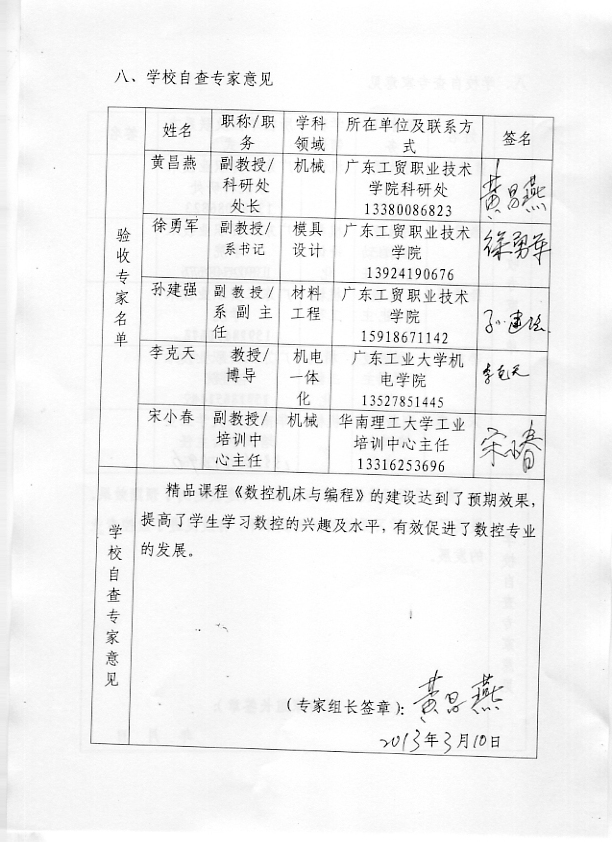 八、学校自查专家意见
验收专家名单
姓名 职称/职务 学科领域 所在单位及联系方式 签名
黄昌燕 副教授/科研处处长 机械 广东工贸职业技术学院科研处 13380086823 黄昌燕
徐勇军 副教授/系书记 模具设计 广东工贸职业技术学院 13924190676 徐勇军
孙建强 副教授/系副主任 材料工程 广东工贸职业技术学院 15918671142 孙建强
李克天 教授/博导 机电一体化 广东工业大学机电学院 13527851445 李克天
宋小春 副教授/培训中心主任 机械 华南理工大学工业培训中心主任 13316253696 宋小春
学校自查专家意见
精品课程《数控机床与编程》的建设达到了预期效果，
提高了学生学习数控的兴趣及水平，有效促进了数控专业
的发展。
（专家组长签章）：黄昌燕
2013年3月10日